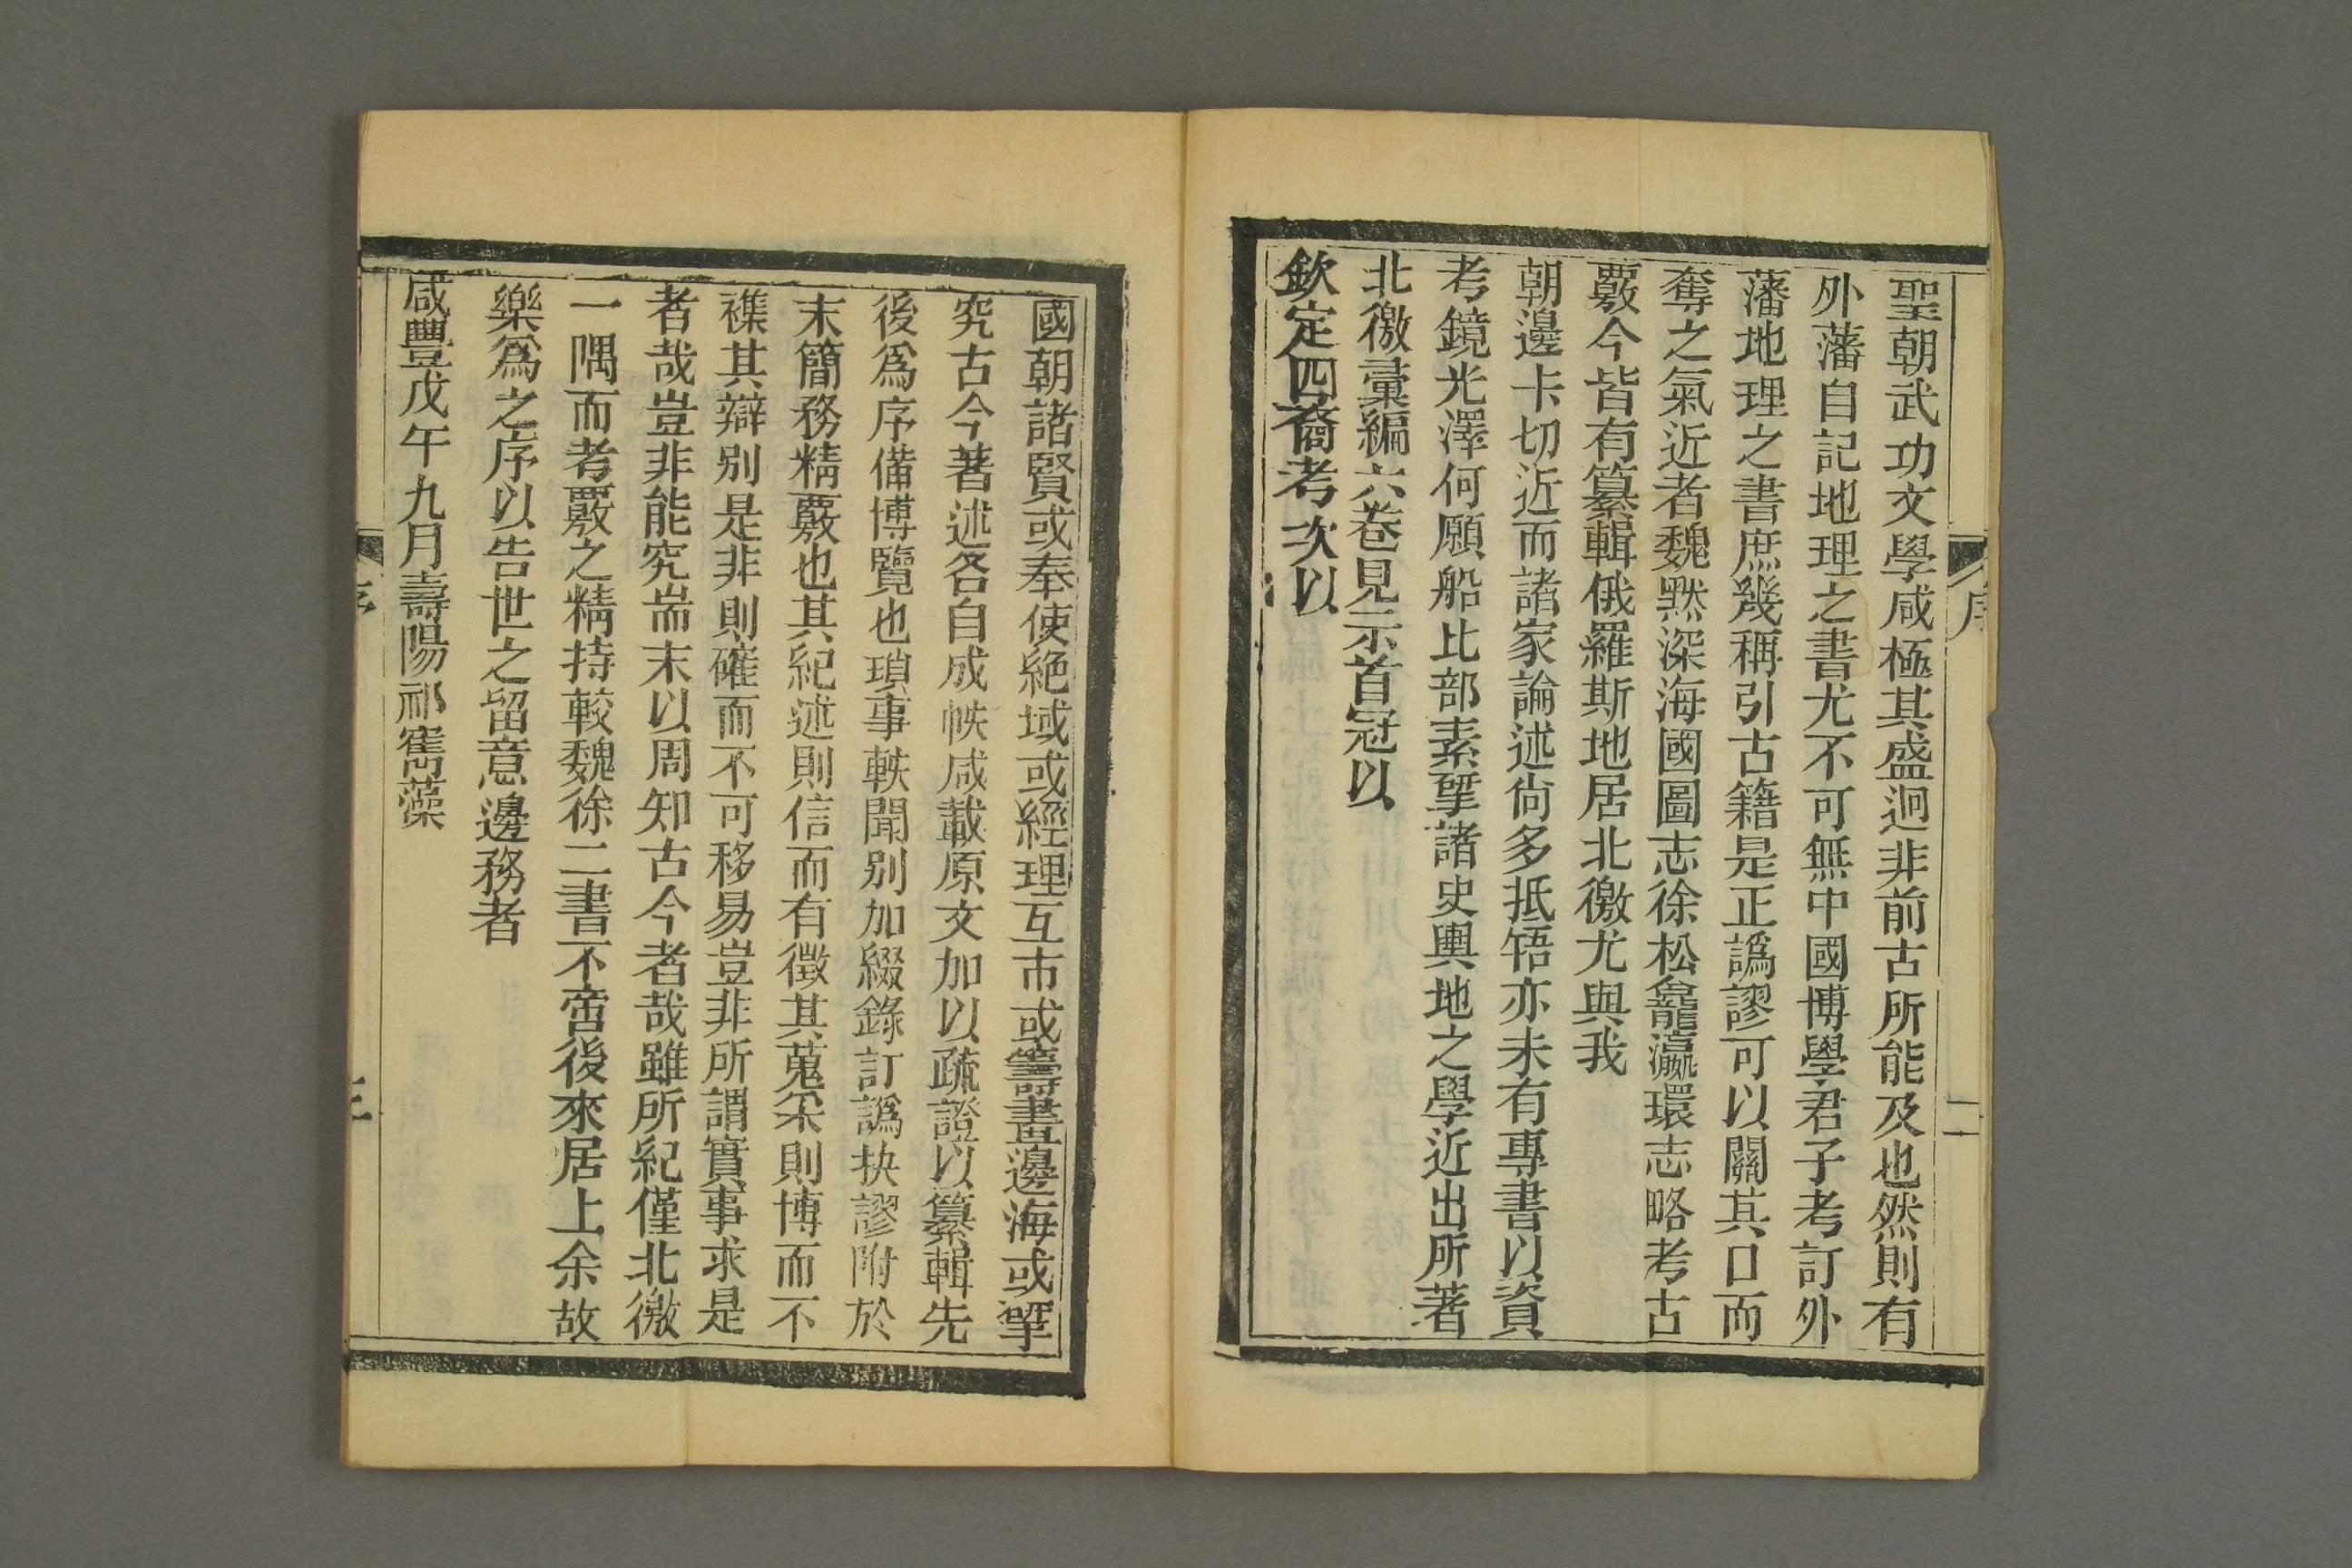 序
二
聖朝武功文學咸極其盛迥非前古所能及也然則有
外藩自記地理之書尤不可無中國博學君子考訂外
藩地理之書庶幾稱引古籍是正譌謬可以關其口而
奪之氣近者魏默深海國圖志徐松龕瀛環志略考古
覈今皆有纂輯俄羅斯地居北徼尤與我
朝邊卡切近而諸家論述尙多抵牾亦未有專書以資
考鏡光澤何願船比部素揅諸史輿地之學近出所著
北徼彙編六卷見示首冠以
欽定四裔考次以
國朝諸賢或奉使絕域或經理互市或籌畫邊海或揅
究古今著述各自成帙咸載原文加以疏證以纂輯先
後爲序備博覽也瑣事軼聞別加綴錄訂譌抉謬附於
末簡務精覈也其紀述則信而有徵其蒐采則博而不
襍其辯別是非則確而不可移易豈非所謂實事求是
者哉豈非能究耑末以周知古今者哉雖所紀僅北徼
一隅而考覈之精持較魏徐二書不啻後來居上余故
樂爲之序以告世之留意邊務者
咸豐戊午九月壽陽祁寯藻
序
三